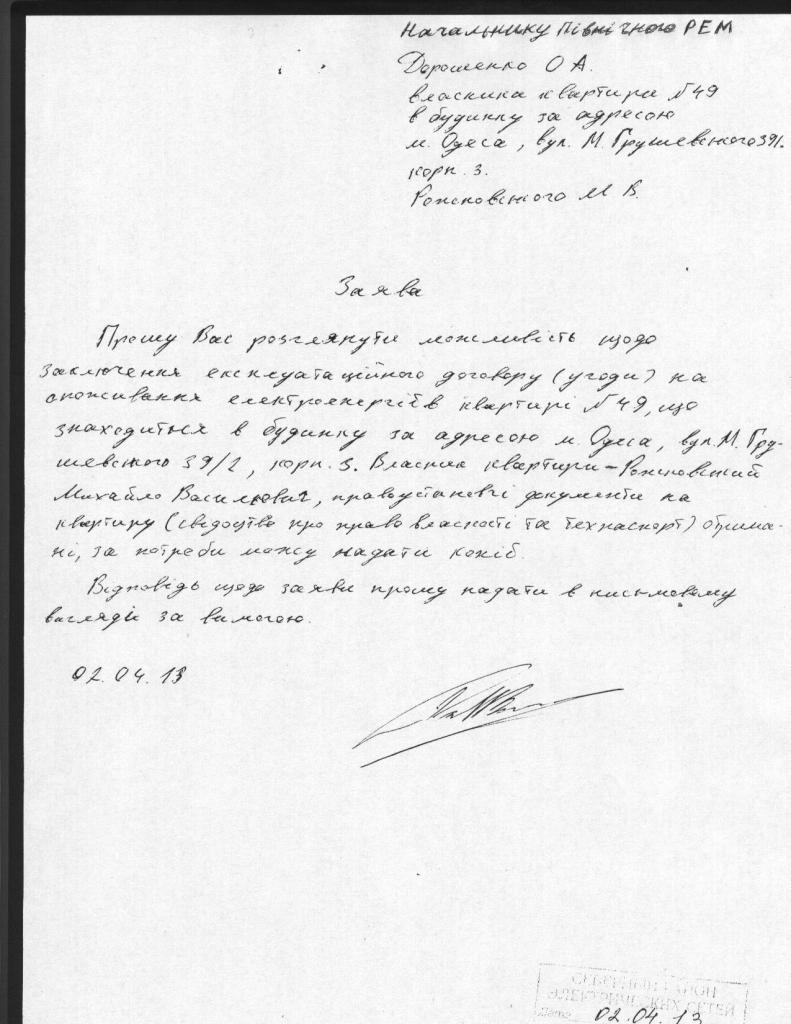 Начальнику Північного РЕМ
Дорошенко О А.
власника квартири №49
в будинку за адресою
м. Одеса, вул. М. Грушевського 39/.
корп. 3.
Рожковського М В.
Заява
Прошу Вас розглянути можливість щодо
заключення експлуатаційного договору (угоди) на
споживання електроенергії в квартирі №49, що
знаходиться в будинку за адресою м. Одеса, вул. М. Гру-
шевського 39/2, корп. 3. Власник квартири – Рожковський
Михайло Васильович, правоустановчі документи на
квартиру (свідоцтво про право власності та техпаспорт) отрима-
ні, за потреби можу надати копії.
Відповідь щодо заяви прошу надати в письмовому
вигляді за вимогою.
02.04.13
СЕВЕРНЫЙ РАЙОН
ЭЛЕКТРИЧЕСКИХ СЕТЕЙ
02.04.13